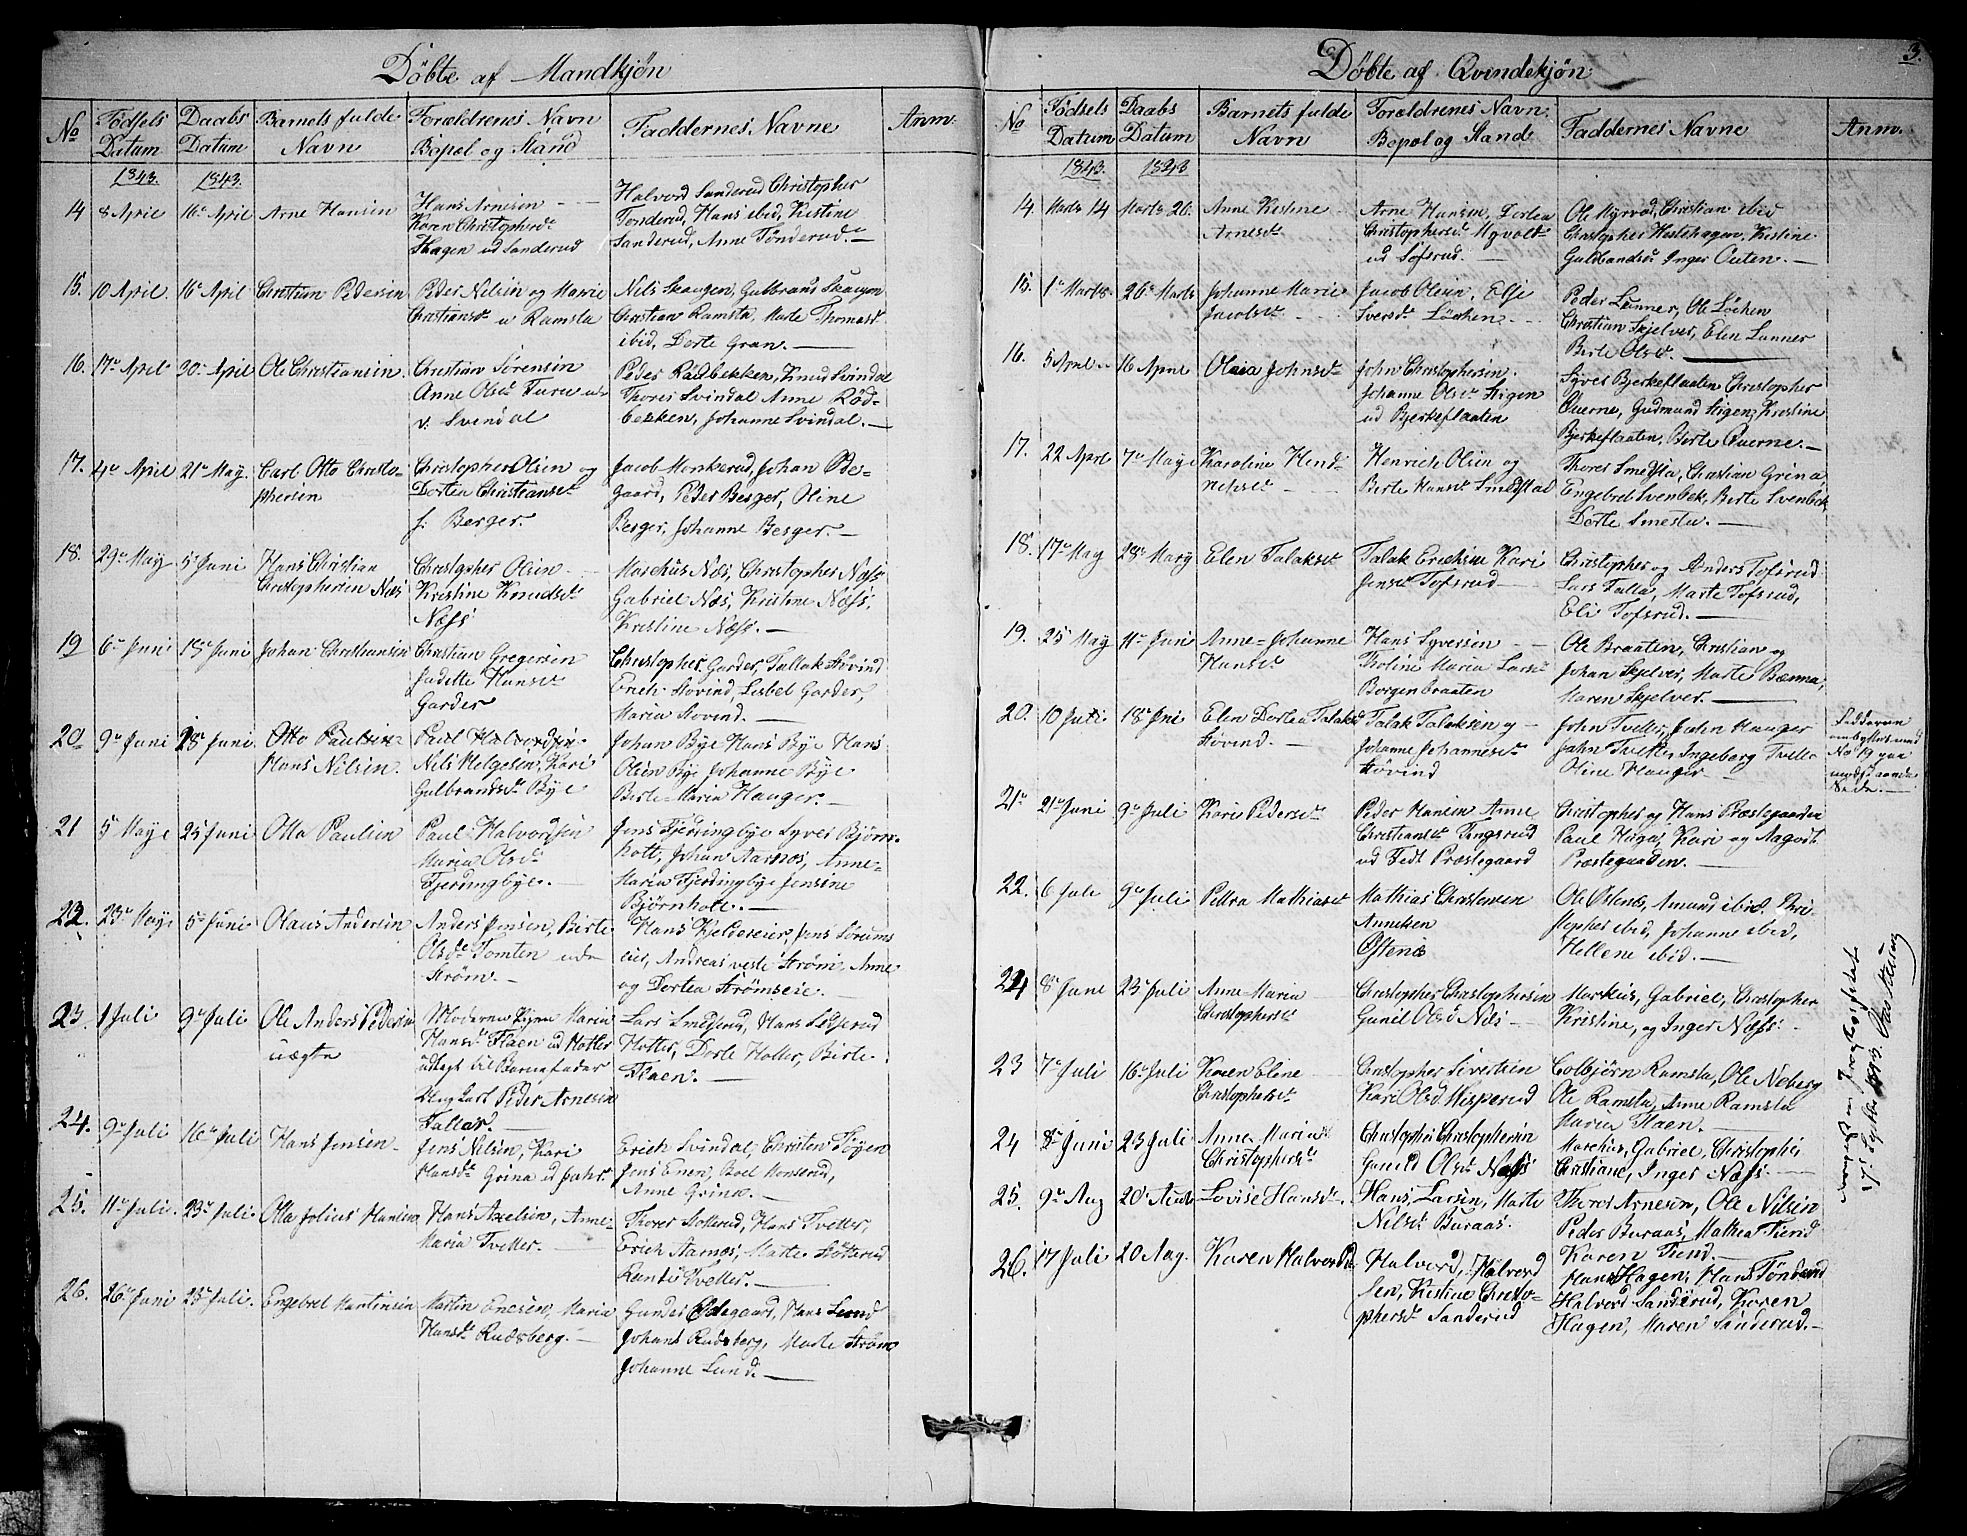 Døbte af Mandkjøn
No
Fødsels Datum
Daabs Datum
Barnets fulde Navn
Forældrenes Navn Bopæl og Stand
Faddernes Navne
Anm.
1843. 1843.
14 8 April 16 April Arne Hansen
Hans Arnesen
Karen Christophersdr
Skagen ud Sanderud
Halvord Sanderud Christopher
Tonderud, Hans ibid, Kistine
Sanderud, Anne Tønderud.
15. 10 April 16 April Christian Pedersen
Peder Nilsen og Marie
Christiansdr u Ramsta
Nils Skaugen, Gulbrand Skaugen
Christian Ramsta, Marte Thomasd
ibid, Dorte Gran.
16. 17 April 30 April Ole Christiansen.
Christian Sørensen
Anne Olsdr
v. Svendal
Peder Rødbekken, Knud Svindal
Thores Svindal Anne Rød-
bekken, Johanne Svindal.
17. 4 April 21 May. Carl Otto Christo-
phersen
Christopher Olsen og
Dortea Christiansdr
f: Berger.
Jacob Monkerud, Johan Øde-
gaard, Peder Berger, Oline
Berger, Johanne Berger.
18. 29 May 5 Juni Hans Christian
Christophersen Næs
Christopher Olsen
Kristine Knudsdr
Næss
Marchus Næs, Christopher Næss
Gabriel Næs, Kristine Næss,
Kristine Næss.
19 6 Juni 18 Juni Johan Christiansen
Christian Gregersen
Jadette Hansdr
Garder
Christopher Garder, Tallak Støvind
Erich Støvind, Lisbet Garder,
Maria Stovind.
20 9 Juni 18 Juni Otto Paulsen
Hans Nilsen.
Paul Halvordsen
Nils Helgesen, Kari
Gulbrandsdr Bye
Johan Bye Hans Bye Hans
Olsen Bye Johanne Bye
Berte Maria Hauger.
21 5 Maye 25 Juni Otto Paulsen
Paul Halvordsen
Maria Olsdr
Fjerdingbye.
Jens Fjerdingbye Syver Bjørn-
holt, Johan Aarnæs, Anne
Maria Fjerdingbye Jensine
Bjørnholt.
22. 23 Maye 5 Juni Olaus Andersen
Anders Jensen, Berte
Olsdr Tomten udr
Strøm.
Hans Kjeldereier, Jens Sørums
eier, Andreas veste Strøm, Anne
og Dortea Strømseie.
23. 1 Juli 9 Juli Ole Anders Pedersen
uægte
Moderen Pigen Maria
Hansdr Flaen ud Holter
udlagt til Barnefader
Ung Karl Peder Arnesen
Fallar.
Lars Smedsrud, Hans
Holter, Dorte Holter, Berte
Flaen.
24. 9 Juli 16 Juli Hans Jensen.
Jens Nilsen, Kari
Hansdr Grina ud
Erich Svindal, Christen Tøyen
Jens Enen, Boel Monserud,
Anne Grina.
25. 11 Juli. 23 Juli. Otto Julius Hansen
Hans Axelsen, Anne
Maria Tveter.
Thores Stotterud, Hans Tveter,
Erich Aarnæs, Marte Støterud
Tveter.
26. 26 Juni 23 Juli. Engebret Martinsen
Martin Enesen, Maria
Hansdr Rudsberg.
Gunder Ødegaard, Hans Lund
Johans Rudsberg, Marte Strøm
Johanne Lund.
Døbte af Qvindekjøn.
3.
No
Fødsels Datum
Daabs Datum
Barnets fulde Navn
Forældrenes Navn Bopæl og Stand
Faddernes Navne
Anm.
1843. 1843
14. Marts 14 Marts 26. Anne Kistine
Arnesdr
Arne Hansen, Dortea
Christophersdr Myrvolt
ud Tofsrud.
Ole Myrvod, Christian ibid
Christopher Hestehagen, Kristine
Guldbrandsd Inger Outen.
15. 1 Marts 26 Marts Johanne Marie
Jacobsdr
Jacob Olsen, Else
Iversdr Løchen
Peder Lunner, Ole Løchen
Christian Skjelver, Elen Lunner
Berte Olsdr.
16. 5 April 16 April Olaia Johnsdr
John Christophersen.
Johanne Olsdr Stigen
ud Bjerkeflaaten
Syver Bjerkeflaaten Christopher
Querne, Gudmund Stigen, Kristine
Bjerkeflaaten, Berte Querne.
17. 22 April 7 Maye Karoline Hend-
richsdr
Henrich Olsen og
Berte Hansdr Smedstad
Thores Smedsta, Christian Grina,
Engebret Svenbek, Berte Svenbek
Dorte Smesta.
18. 17 May 28 May Elen Talaksdr
Talak Erichsen Kari
Jensdr Tofsrud
Christopher og Anders Tofsrud
Lars Falla, Marte Tofsrud,
Eli Tofsrud.
19. 25 May 11 Juni Anne Johanne
Hansdr
Hans Syversen
Tholine Maria Larsdr
Borgenbraaten
Ole Braaten, Christian og
Johan Skjelver, Marte Bænna,
Maren Skjelver.
20. 10 Juli 18 Juni Elen Dortea Talaksd
Støvind.
Talak Talaksen og
Johanne Johannesdr
Støvind
John Tveter, John Hauger
John Tveter, Ingeborg Tveter
Oline Hauger
Fadderne
ombyttes med
No 19 paa
modstaaende
Side.
21. 21 Juni 9 Juli Kari Pedersdr
Peder Hansen Anne
Christiansdr Tingsrud
ud Fedt Præstegaard
Christopher og Hans Præstegaarden
Paul Haga, Kari og Aagodt
Præstegaarden.
22. 6 Juli 9 Juli Pettra Mathiasdr
Mathias Christensen
Anneken
Østenæs
Ole Ostenæs, Amund ibid. Chri-
stopher ibid, Johanne ibid,
Hellene ibid.
24 8 June 23 Juli Anne Maria
Christophersdr
Christopher Christophersen
Gunil Olsd Næs
Markus, Gabriel, Christopher
Kristine, og Inger Næss.
23 7 Juli 16 Juli Karen Eline
Christophersdr
Christopher Sivertsen
Kari Olsd. Misperud
Colbjørn Ramsta, Ole Noberg
Ole Ramsta, Anne Ramsta
Maria Flaen.
24 8 Juni 23 Juli Anne Maria
Christophersdr
Christopher Christophersen
Gunild Olsdr Næss
Marchus, Gabriel, Christopher
Christiane, Inger Næss.
25. 9 Aug 20 Lovise Hansdr.
Hans Larsen, Marte
Nilsdr Buraas.
Thores Arnesen, Ole Nilsen
Peder Buraas, Mathea Tiend
Karen Tiend.
26. 17 Juli 20 Aug. Karen Halvorsd
Halvord, Halvord
sen, Kistine Christo-
phersdr Sanderud
Hans Hagen, Hans Tønderud
Halvord Sanderud, Karen
Hagen, Maren Sanderud.